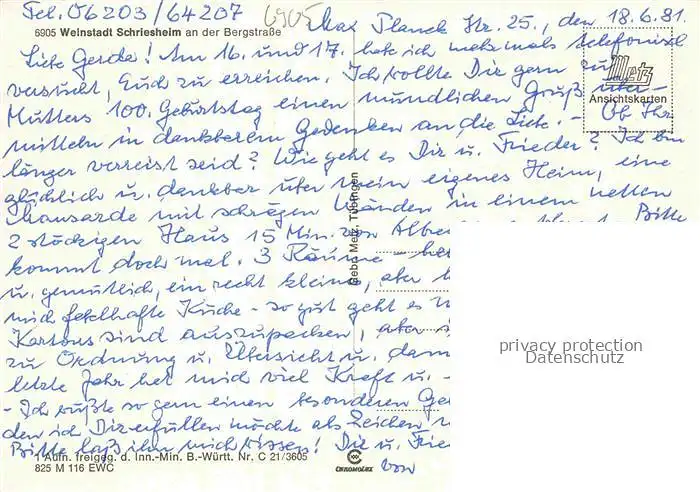 Tel. 06203/64207
6905
Max Planck Str. 25, den 18.6.81.
6905 Weinstadt Schriesheim an der Bergstraße
Liebe Gerda! Am 16. und 17. hab ich mehrmals telefonisch
versucht, Euch zu erreichen. Ich wollte Dir gern zu
Metz
Ansichtskarten
Mutters 100. Geburtstag einen mündlichen Gruß über-
mitteln in dankbarem Gedenken an die Liebe. - Ob Ihr
länger verreist seid? Wie geht es Dir u. Frieder? Ich bin
glücklich u. dankbar über mein eigenes Heim, eine
Mansarde mit schrägen Wänden in einem netten
2 stöckigen Haus 15 Min. von Bitte
kommt doch mal. 3 Räume -
u. gemütlich, ein recht kleine, aber
mich fabelhafte Küche - so gut geht es
Kartons sind auszupacken, aber
zu Ordnung u. Übersicht u.
letzte Jahr hat mich viel Kraft u. -
- Ich wüßte so gern einen besonderen
den ich Dir erfüllen möchte als Zeichen
Bitte laß ihn mich wissen! Dir u.
von
Gebr. Metz, Tübingen
privacy protection
Datenschutz
Aufn. freigeg. d. Inn.-Min. B.-Württ. Nr. C 21/3605
825 M 116 EWC
CHROMOLUX